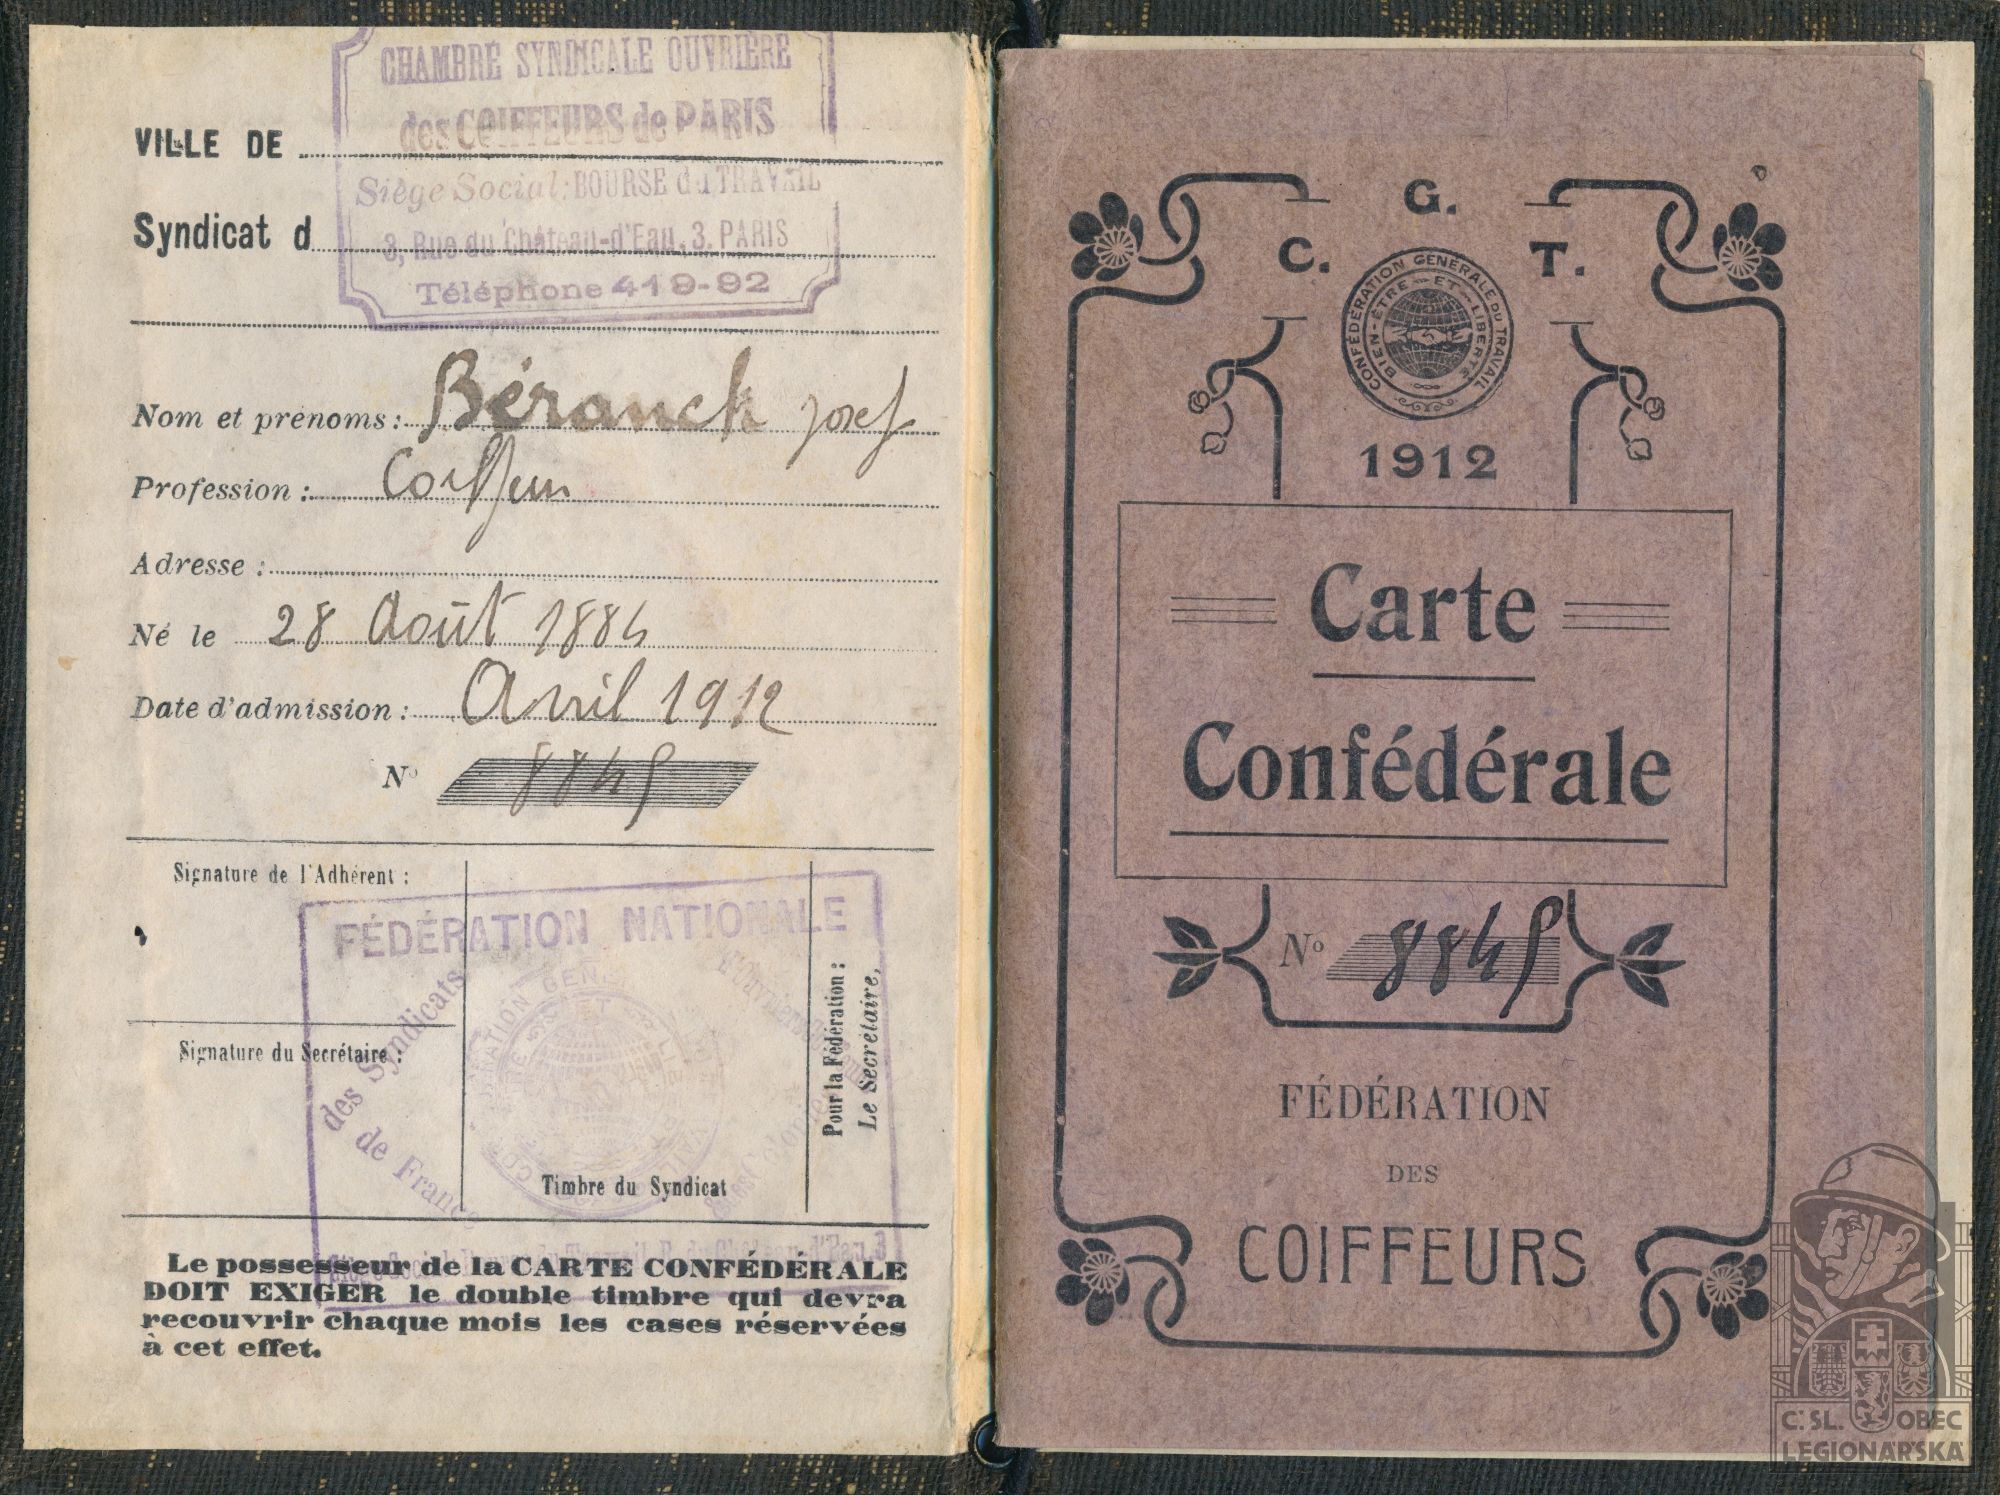 CHAMBRE SYNDICALE OUVRIÈRE
des COIFFEURS de PARIS
VILLE DE
Siège Social: BOURSE du TRAVAIL
Syndicat d
3, Rue du Château-d'Eau, 3, PARIS
Téléphone 419-92
Nom et prénoms: Béranek Josef
Profession: Coiffeur
Adresse:
Né le 28 Août 1884
Date d'admission: Avril 1912
No 8845
Signature de l'Adhérent:
FÉDÉRATION NATIONALE
des Syndicats
de France
Signature du Secrétaire:
Timbre du Syndicat
Pour la Fédération:
Le Secrétaire,
Le possesseur de la CARTE CONFÉDÉRALE
DOIT EXIGER le double timbre qui devra
recouvrir chaque mois les cases réservées
à cet effet.
C. G. T.
CONFÉDÉRATION GÉNÉRALE DU TRAVAIL
BIEN-ÊTRE ET LIBERTÉ
1912
Carte
Confédérale
No 8845
FÉDÉRATION
DES
COIFFEURS
Č. SL. OBEC
LEGIONÁŘSKÁ